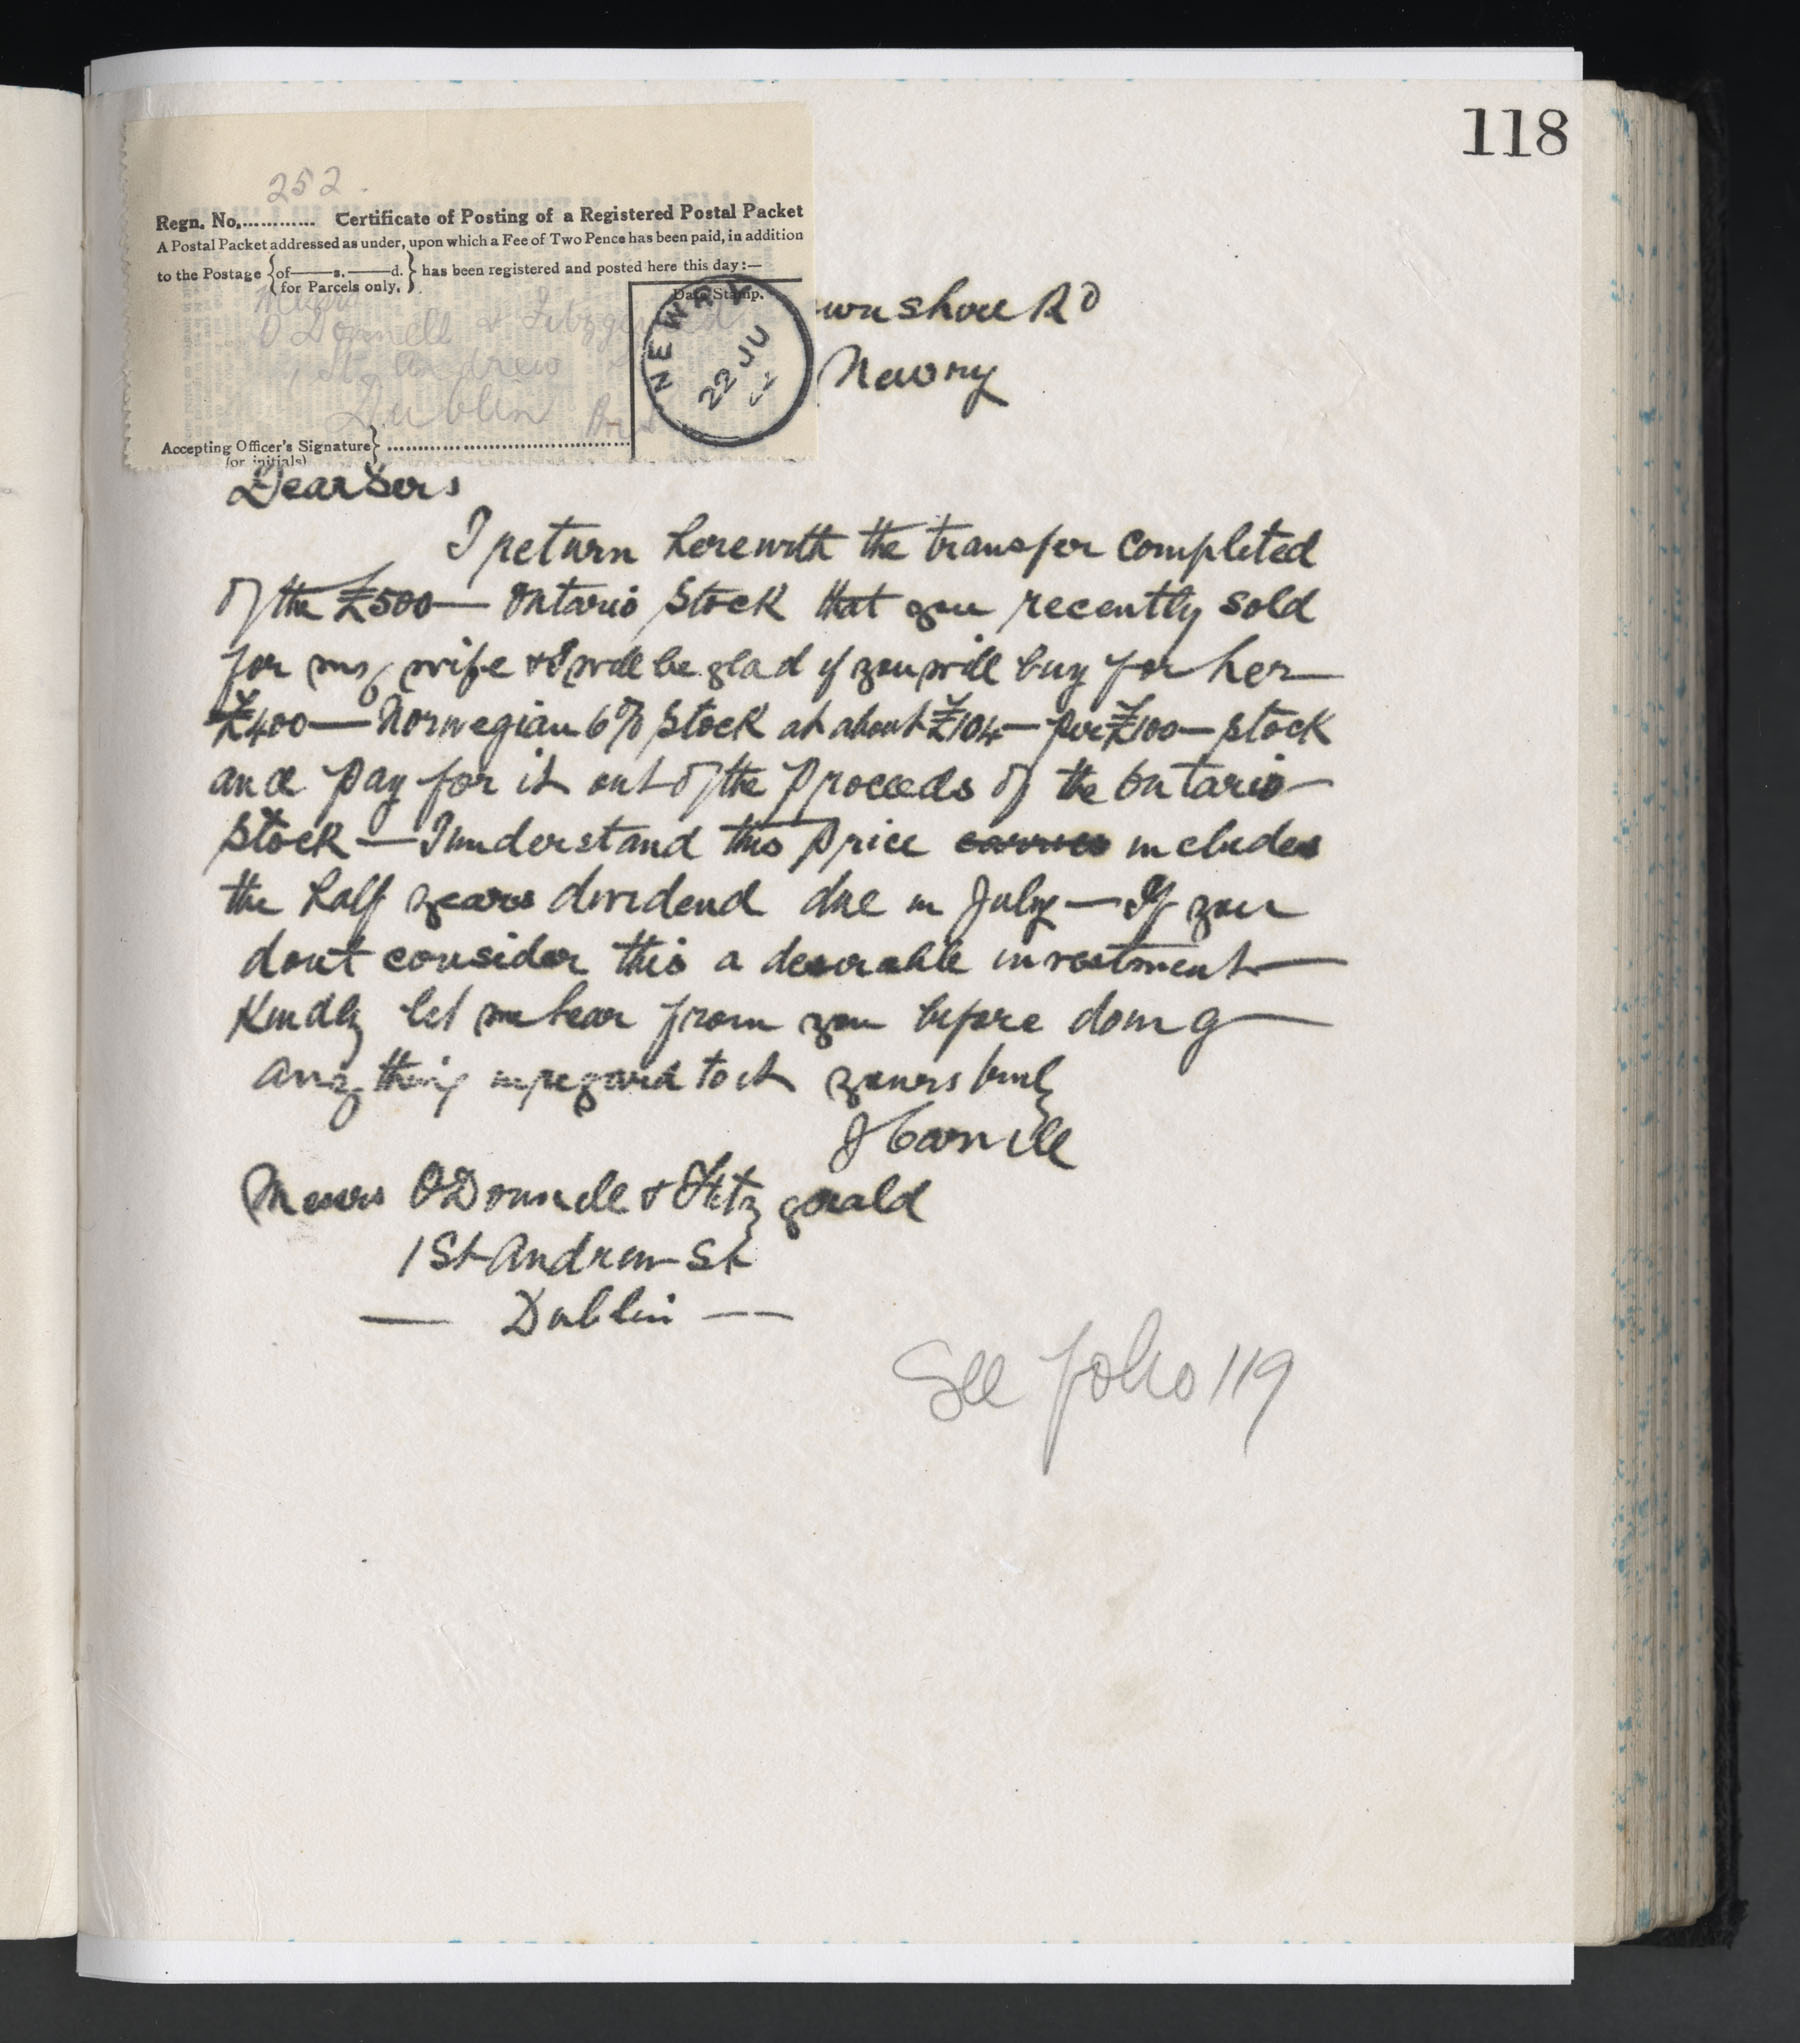 118
252.
Regn. No............. Certificate of Posting of a Registered Postal Packet
A Postal Packet addressed as under, upon which a Fee of Two Pence has been paid, in addition
to the Postage {of——s.——d.} has been registered and posted here this day:—
{for Parcels only.}
Date Stamp.
O'Donnell & Fitzgerald
1 St. Andrew
Dublin
NEWRY
22 JU
Accepting Officer's Signature} ..........
(or initials)
wn shore Rd
Newry
Dear Sirs
I return herewith the transfer completed
of the £500— Ontario Stock that you recently sold
for my wife & I will be glad if you will buy for her
£400— Norwegian 6% Stock at about £104— per £100— stock
and pay for it out of the proceeds of the Ontario
Stock — I understand this price carries includes
the half years dividend due in July — If you
dont consider this a desirable investment
Kindly let me hear from you before doing
any thing in regard to it yours truly
Messrs O'Donnell & Fitzgerald
1 St Andrew St
— Dublin —
See folio 119